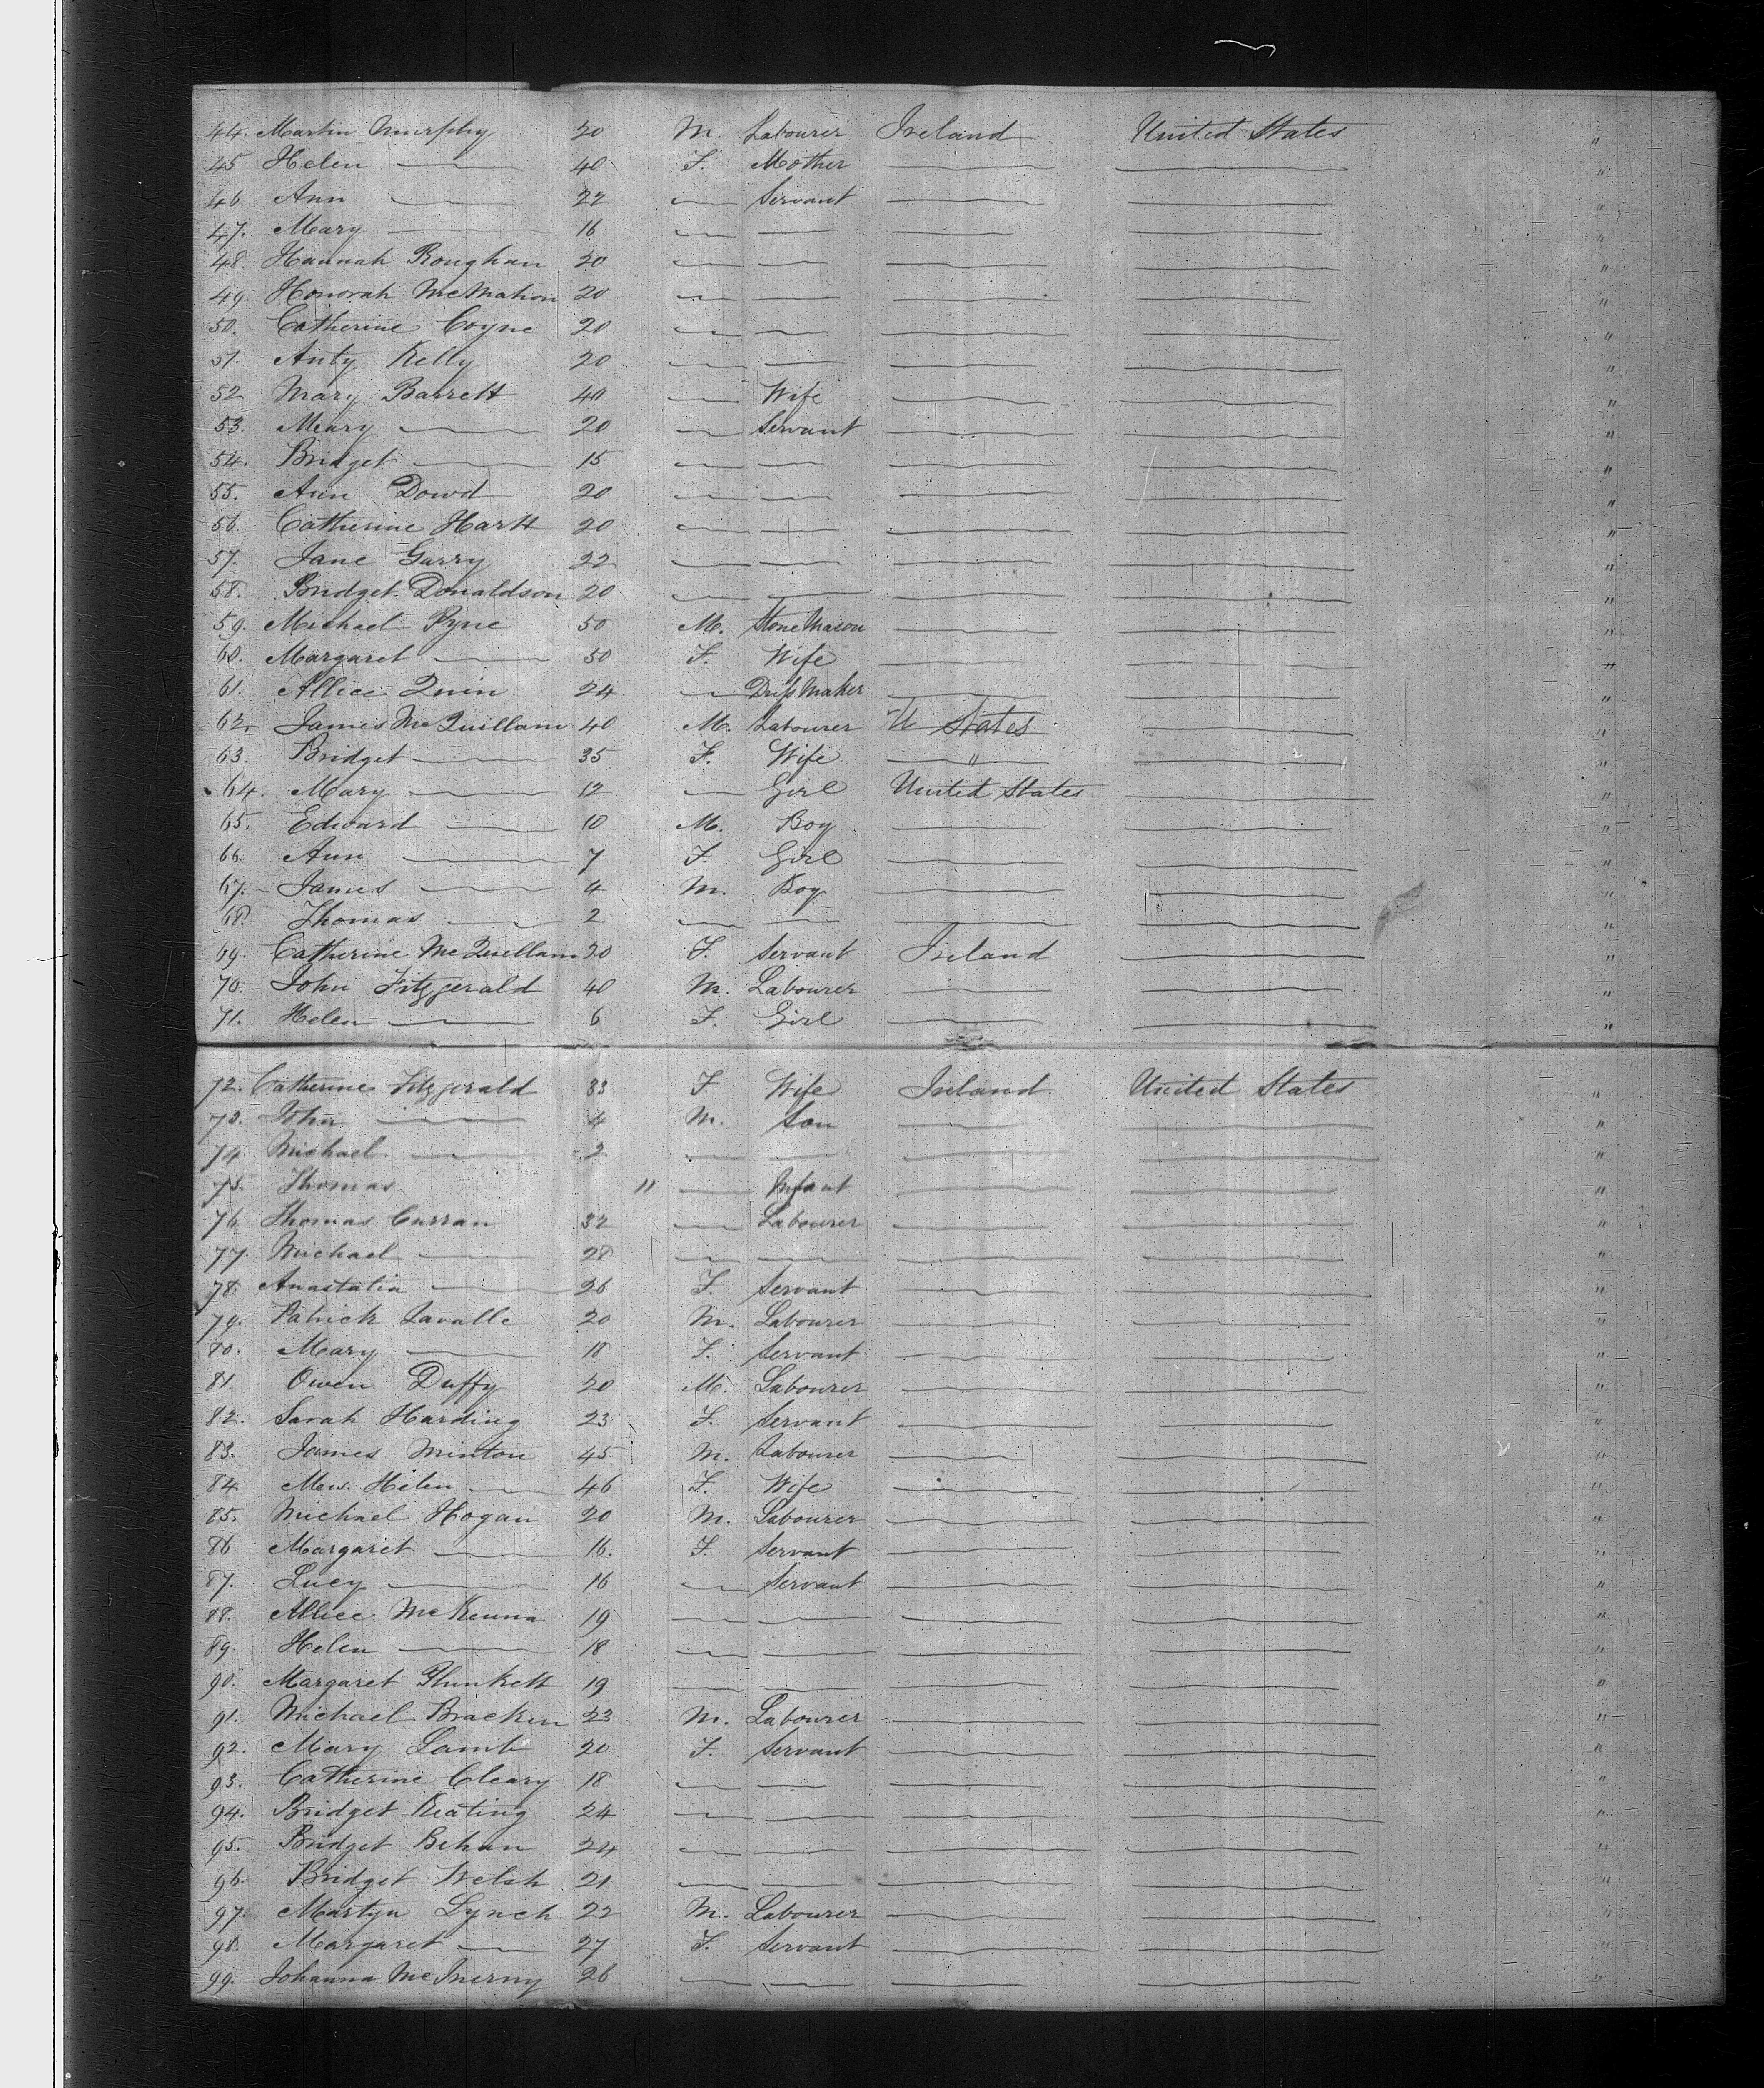 44. Martin Murphy 20 M. Labourer Ireland United States "
45 Helen — 40 F. Mother — — "
46 Ann — 22 — Servant — — "
47. Mary — 16 — — — — "
48. Hannah Roughan 20 — — — — "
49. Honorah McMahon 20 — — — — "
50. Catherine Coyne 20 — — — — "
51. Anty Kelly 20 — — — — "
52 Mary Barrett 40 — Wife — — "
53. Mary — 20 — Servant — — "
54. Bridget — 15 — — — — "
55. Ann Dowd 20 — — — — "
56. Catherine Hartt 20 — — — — "
57. Jane Garry 22 — — — — "
58. Bridget Donaldson 20 — — — — "
59. Michael Pyne 50 M. Stone Mason — — "
60. Margaret — 50 F. Wife — — "
61. Allice Quin 24 — Dress Maker — — "
62. James McQuillam 40 M. Labourer U States — "
63. Bridget — 35 F. Wife — " — — "
64. Mary — 12 — Girl United States — "
65. Edward — 10 M. Boy — — "
66. Ann — 7 F. Girl — — "
67. James — 4 M. Boy — — "
68. Thomas — 2 — — — — "
69. Catherine McQuillam 20 F. Servant Ireland — "
70. John Fitzgerald 40 M. Labourer — — "
71. Helen — 6 F. Girl — — "
72. Catherine Fitzgerald 33 F Wife Ireland United States "
73. John — 4 M. Son — — "
74. Michael — 2 — — — — "
75. Thomas " — Infant — — "
76 Thomas Curran 32 — Labourer — — "
77. Michael — 28 — — — — "
78. Anastatia — 26 F. Servant — — "
79. Patrick Lavalle 20 M. Labourer — — "
80. Mary — 18 F. Servant — — "
81 Owen Duffy 20 M. Labourer — — "
82. Sarah Harding 23 F. Servant — — "
83. James Minton 45 M. Labourer — — "
84. Mrs. Helen — 46 F. Wife — — "
85. Michael Hogan 20 M. Labourer — — "
86 Margaret — 16. F. Servant — — "
87. Lucy — 16 — Servant — — "
88. Allice McKenna 19 — — — — "
89. Helen — 18 — — — — "
90. Margaret Plunkett 19 — — — — "
91. Michael Bracken 23 M. Labourer — — "
92. Mary Lamb 20 F. Servant — — "
93. Catherine Cleary 18 — — — — "
94. Bridget Keating 24 — — — — "
95. Bridget Behan 24 — — — — "
96. Bridget Welsh 21 — — — — "
97. Martyn Lynch 22 M. Labourer — — "
98. Margaret — 27 F. Servant — — "
99. Johanna McInerny 26 — — — — "